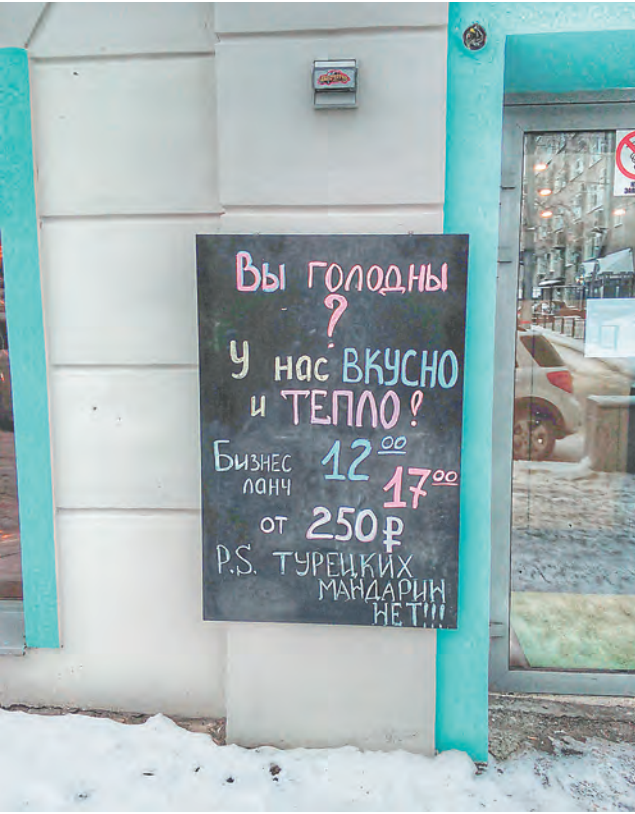 Вы голодны
?
У нас ВКУСНО
и ТЕПЛО!
Бизнес ланч 12⁰⁰
17⁰⁰
от 250₽
P.S. ТУРЕЦКИХ
МАНДАРИН
НЕТ!!!